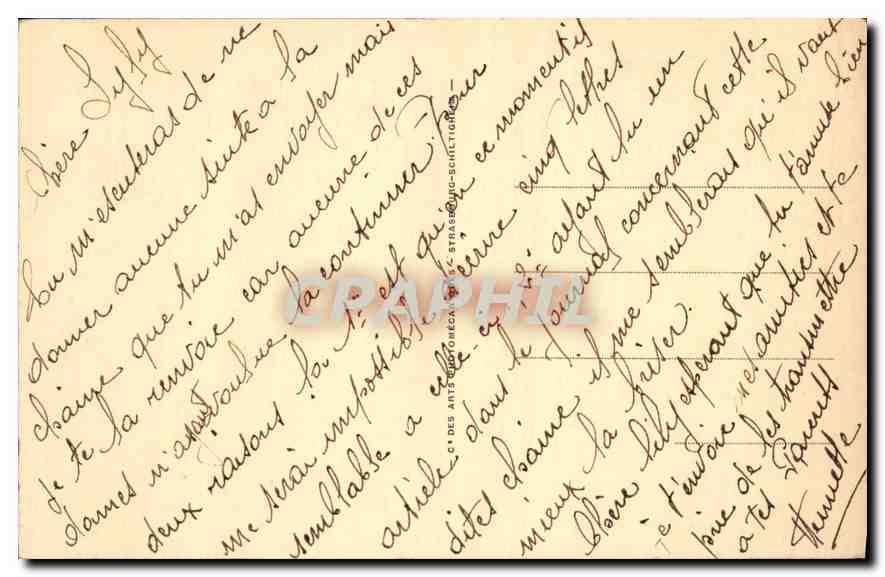 Chère Lyly
Tu m'escuseras de ne
donner aucune suite a la
chaine que tu m'as envoyer mais
je te la renvoie car aucune de ces
dames n'ayant voulue la continuer Pour
deux raisons la 1e est qu'en ce moment il
me serai impossible d'écrire cinq lettres
semblable a celle-ci, 2e ayant lu un
article dans le journal concernant cette
dites chaine il me semblerais qu'il vaut
mieux la briser.
Chère Lily esperant que tu t'amuse bien
je t'envoie mes amitiés et te
prie de les transmettre
a tes Parents
Henriette
Cie DES ARTS PHOTOMÉCANIQUES - STRASBOURG-SCHILTIGHEIM
CPAPHIL